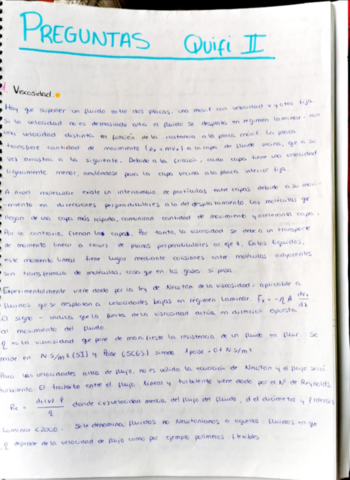 PREGUNTAS Quifi II
1. Viscosidad.
Hay que suponer un fluido entre dos placas, una móvil con velocidad v y otra fija.
Si la velocidad no es demasiado alta el fluido se desplaza en régimen laminar, con
una velocidad distinta en función de la distancia a la placa móvil. La placa
transfiere cantidad de movimiento a la capa de fluido vecina, que a su
vez arrastra a la siguiente. Debido a la fricción, cada capa tiene una velocidad
ligeramente menor, para la capa vecina a la placa inferior fija.
A nivel molecular existe un intercambio de partículas entre capas debido a su movi-
miento en direcciones perpendiculares a la del desplazamiento. Las moléculas que
llegan de una capa más rápida, comunican cantidad de movimiento y aceleran la capa.
Por lo contrario, frenan la capa. Por tanto, la viscosidad se debe a un transporte
de momento lineal a través de planos perpendiculares al eje z. En los líquidos,
este momento lineal tiene lugar mediante colisiones entre moléculas adyacentes
sin transferencia de moléculas, cosa que en los gases si pasa.
Experimentalmente viene dado por la ley de Newton de la viscosidad: aplicable a
fluidos que se desplazan a velocidades bajas en régimen laminar. Fx = -η A dvx/dz
El signo - indica que la fuerza de la viscosidad actúa en dirección opuesta
al movimiento del fluido.
η es la viscosidad que pone de manifiesto la resistencia de un fluido en fluir. Se
mide en N·S/m² (SI) y Poise (SCGS) siendo 1 poise = 0.1 N·S/m²
Para las velocidades altas de flujo, no es válida la ecuación de Newton y el flujo será
turbulento. El tránsito entre el flujo lineal y turbulento viene dado por el Nº de Reynolds
Re = d<v>ρ/η donde <v> velocidad media del flujo del fluido, d el diámetro y ρ densidad
Laminar < 2000. Se le denomina fluidos no Newtonianos a aquellos fluidos en que
η depende de la velocidad de flujo como por ejemplo polímeros flexibles